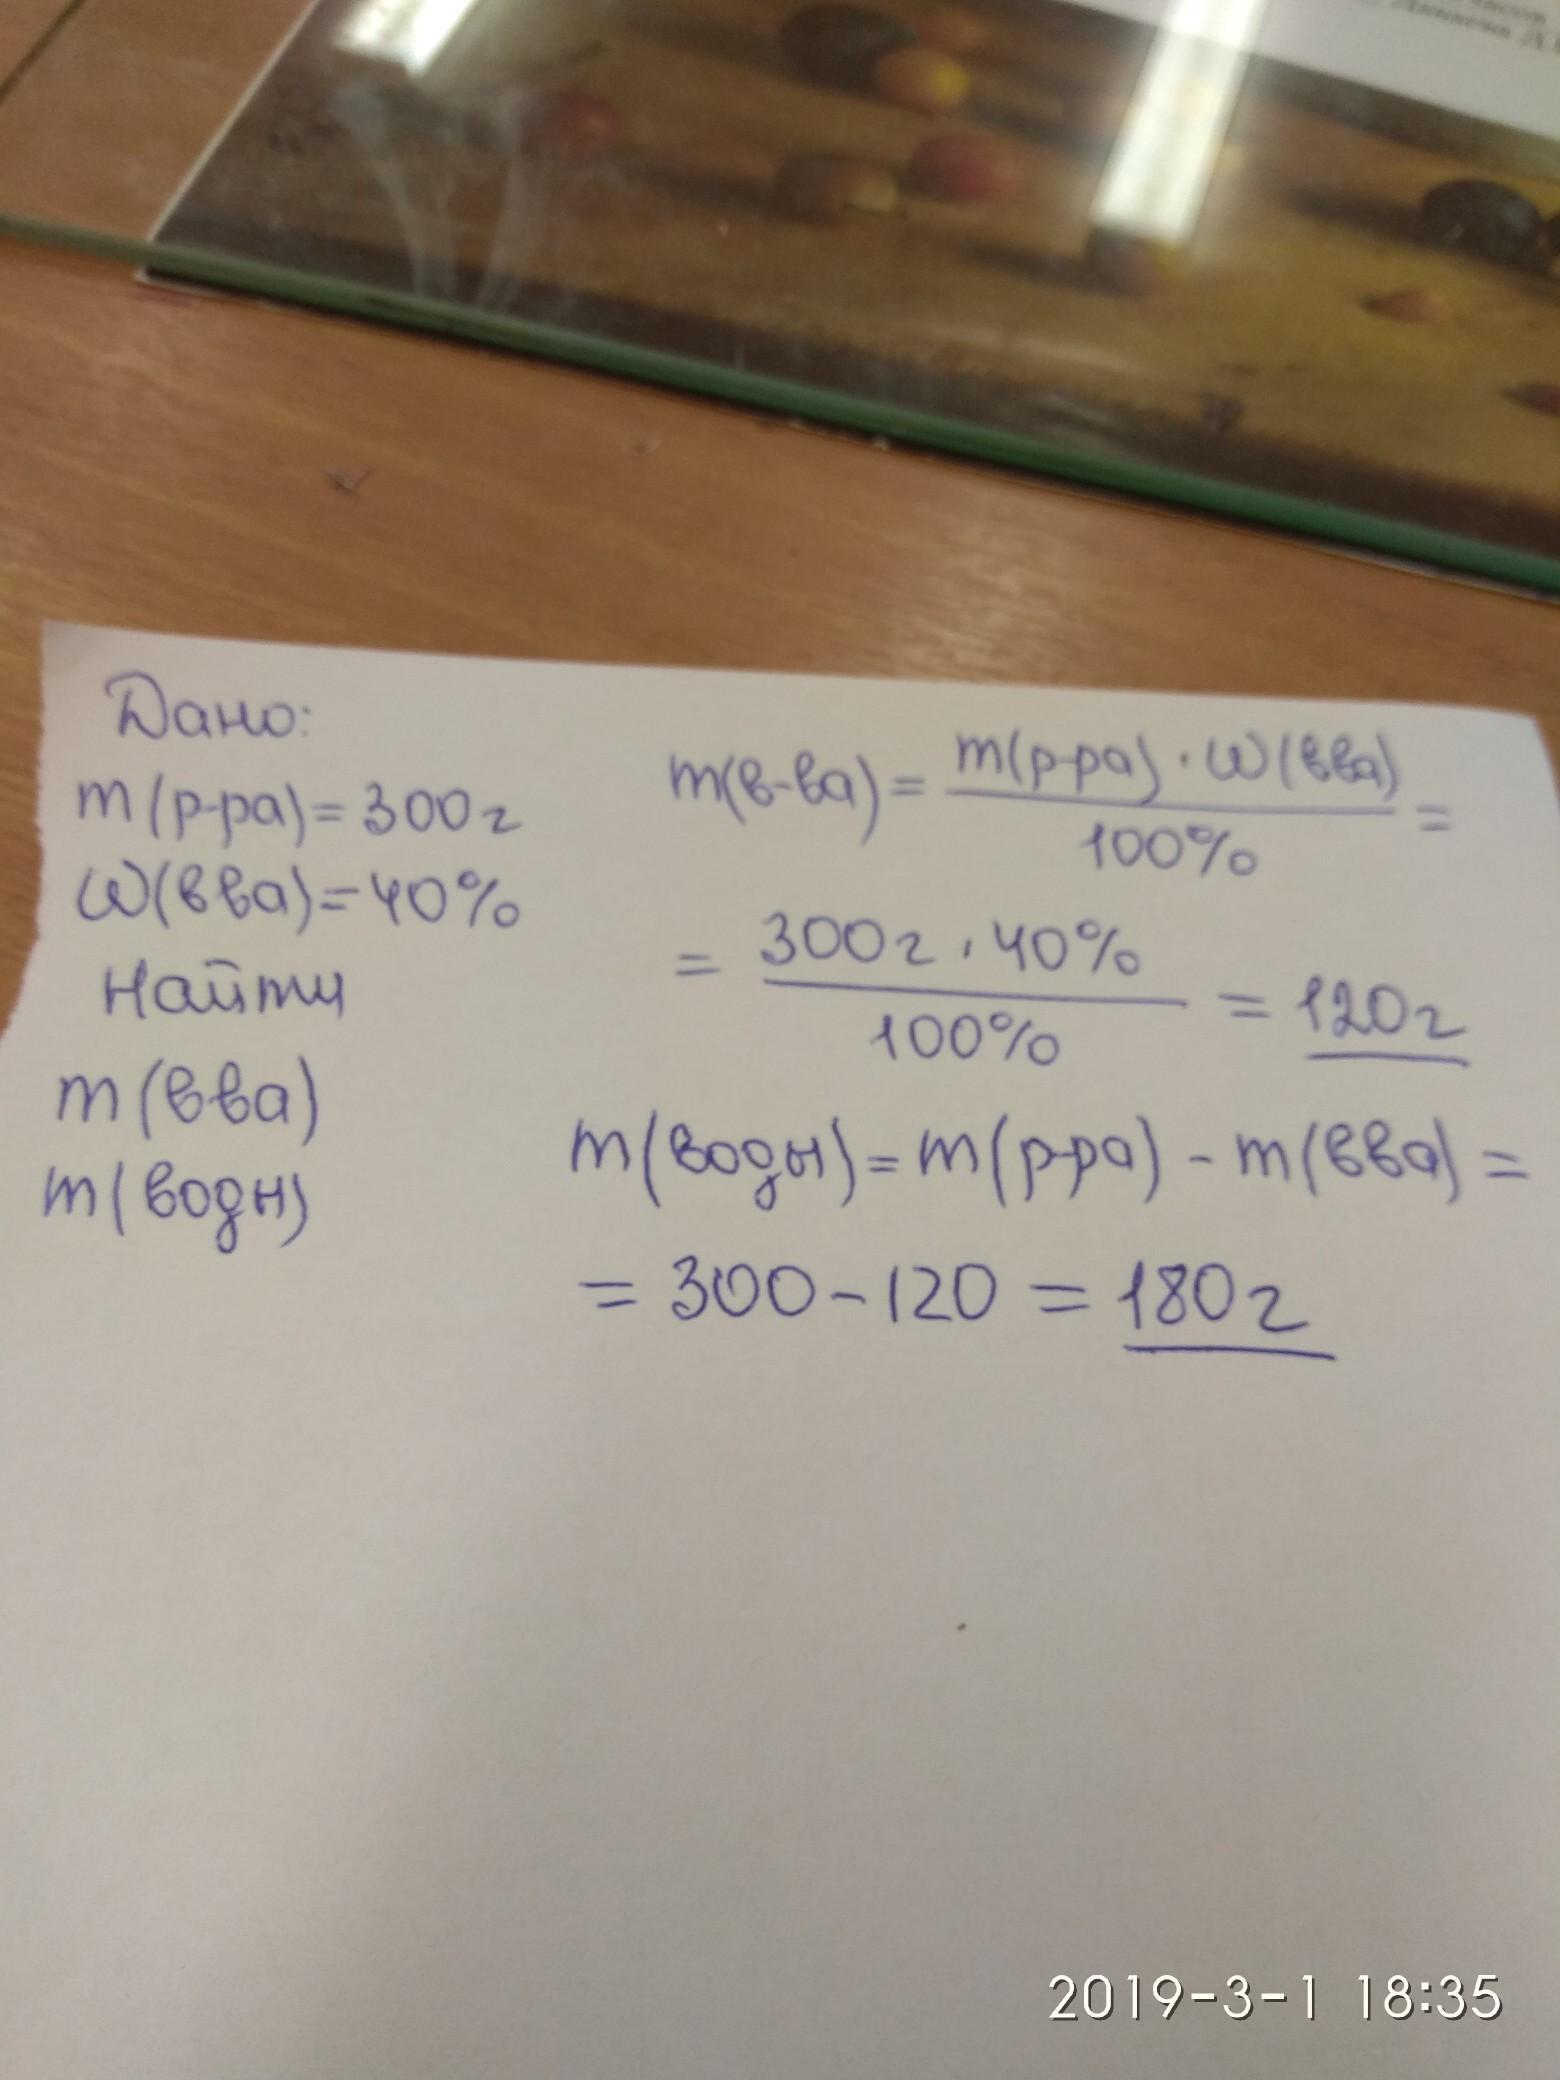 Дано:
m(р-ра)=300г
W(вва)=40%
Найти
m(вва)
m(воды)
m(в-ва) = m(р-ра) · W(вва) / 100% =
= 300г · 40% / 100% = 120г
m(воды) = m(р-ра) - m(вва) =
= 300 - 120 = 180г
2019-3-1 18:35